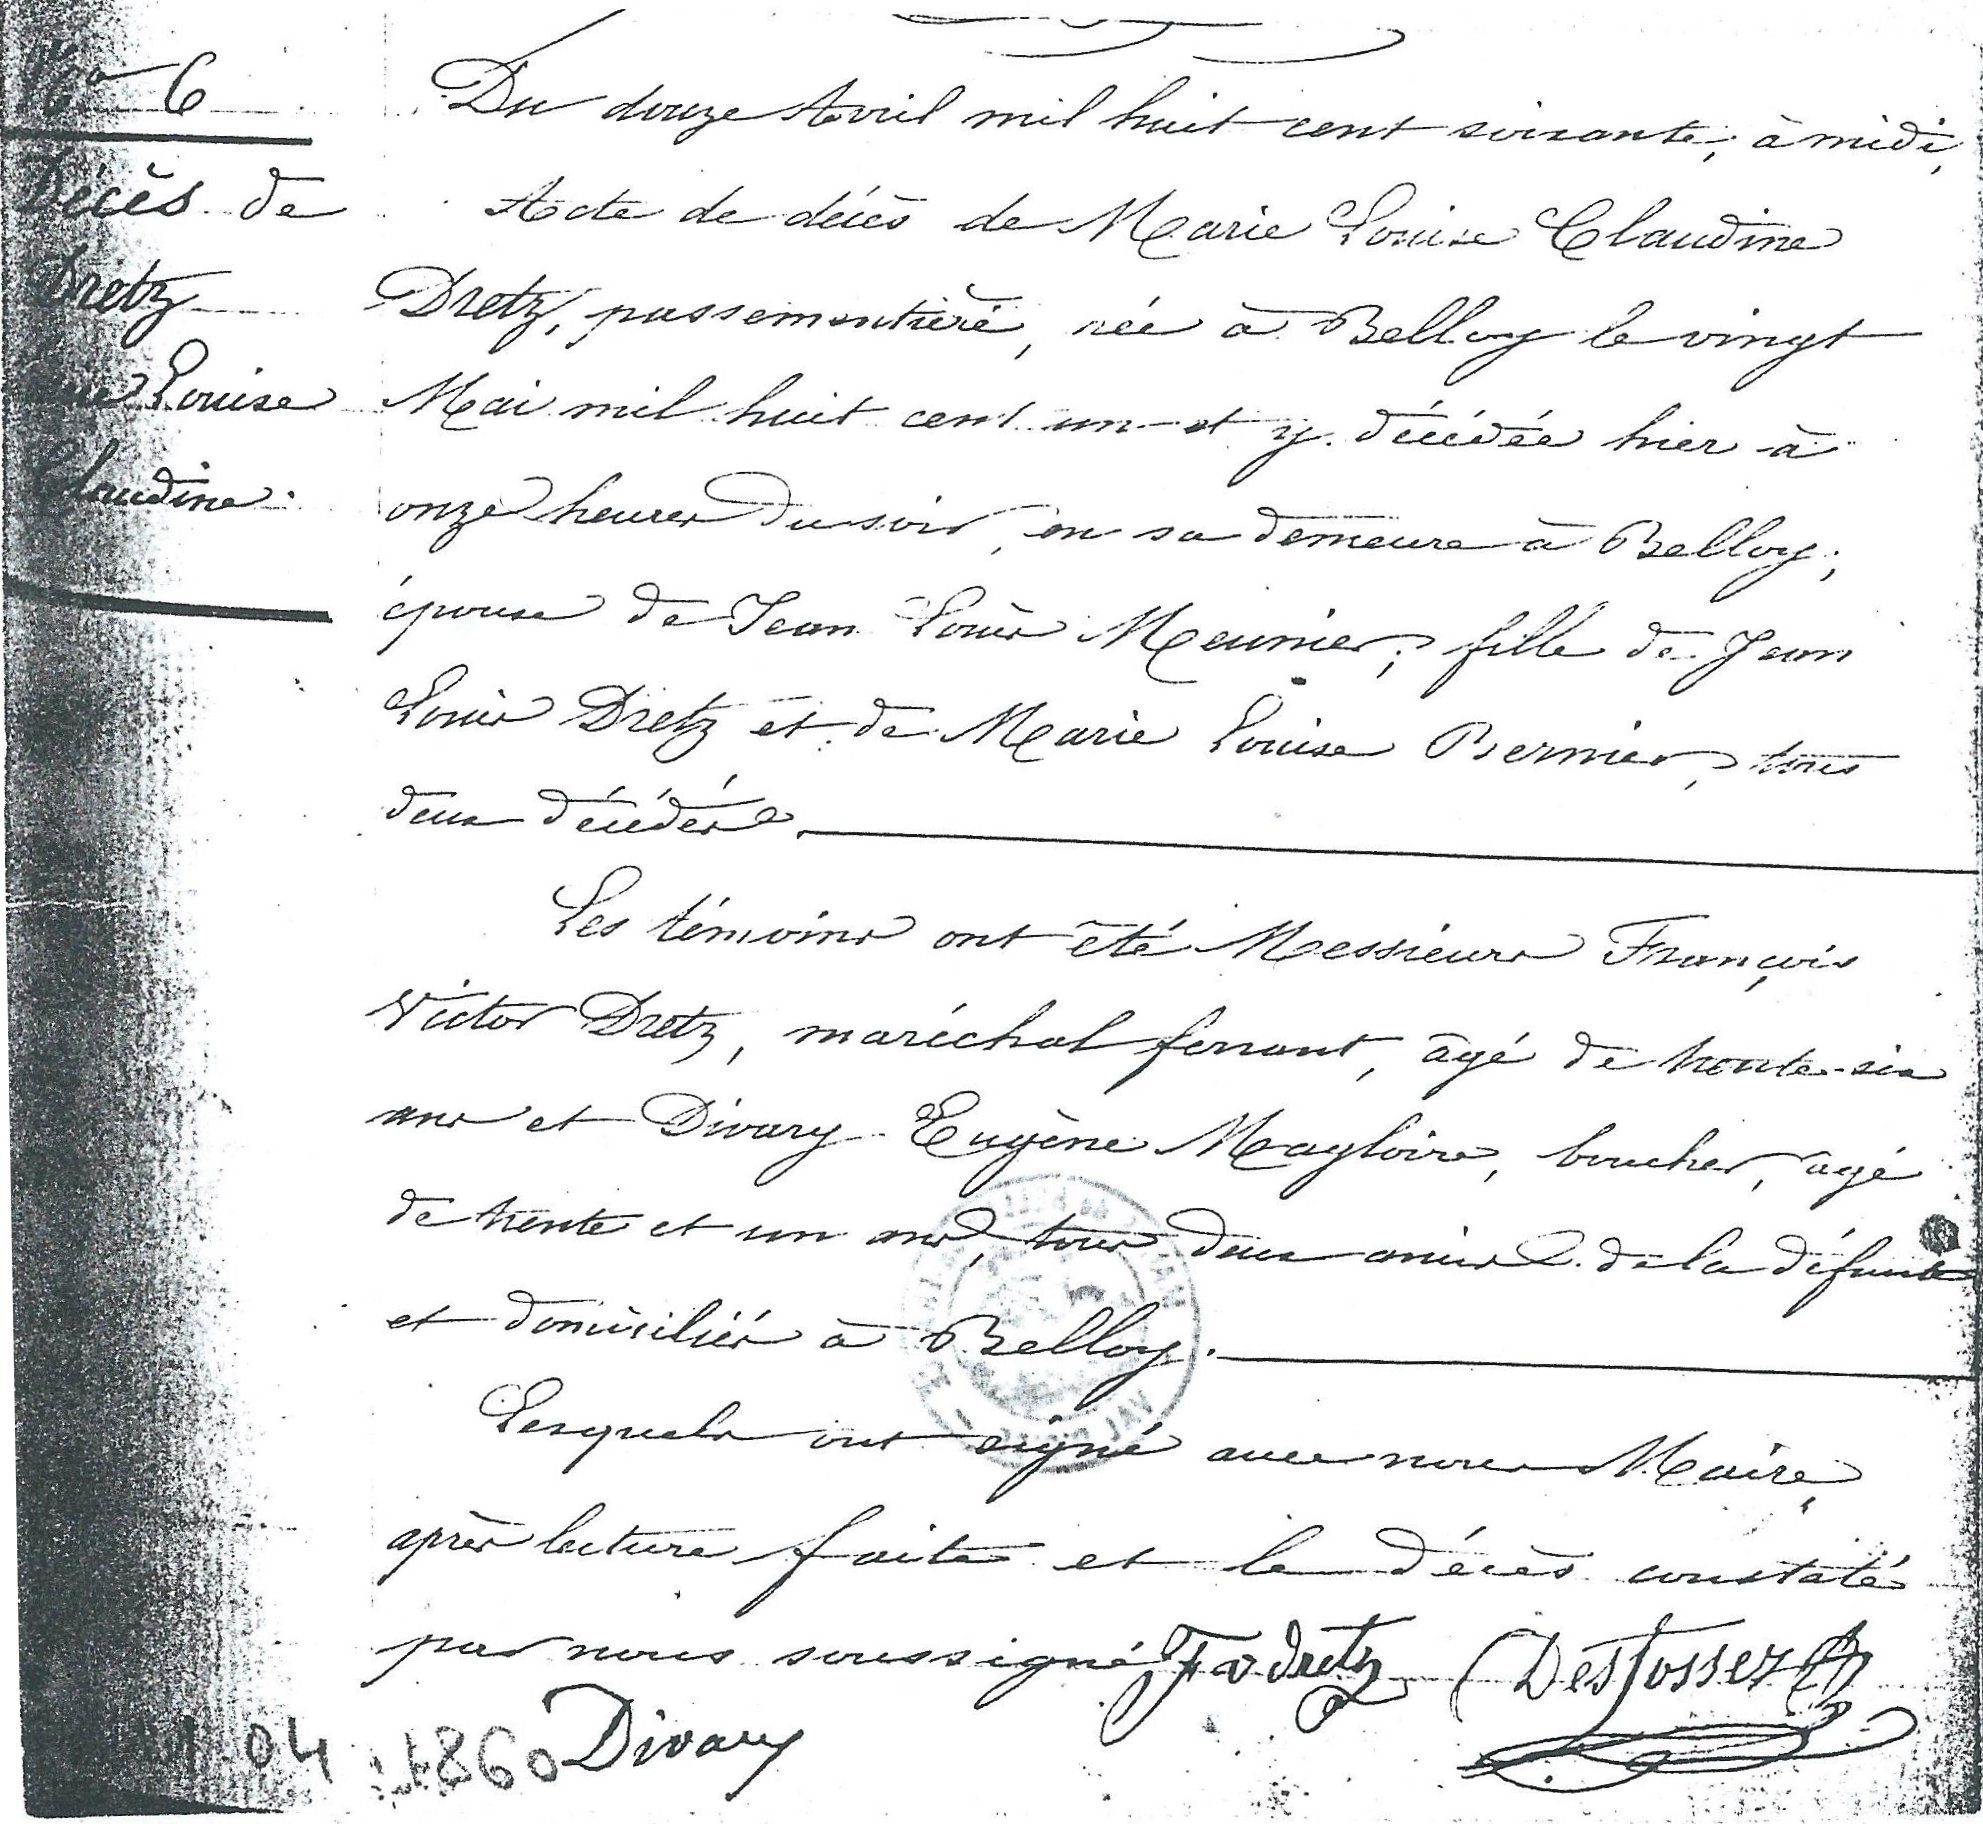 No 6
Décès de
Dretz
Louise
Claudine
Du douze Avril mil huit cent soixante, à midi,
Acte de décès de Marie Louise Claudine
Dretz, passementière, née à Belloy le vingt
Mai mil huit cent un et y décédée hier à
onze heures du soir, en sa demeure à Belloy,
épouse de Jean Louis Meunier, fille de Jean
Louis Dretz et de Marie Louise Bernier, tous
deux décédés.
Les témoins ont été Messieurs François
Victor Dretz, maréchal ferrant, âgé de trente-six
ans et Divary Eugène Magloire, boucher, âgé
de trente et un ans, tous deux amis de la défunte
et domiciliés à Belloy.
Lesquels ont signé avec nous Maire,
après lecture faite et le décès constaté
par nous soussigné
F v dretz
Desfossez
Divary
04 1860